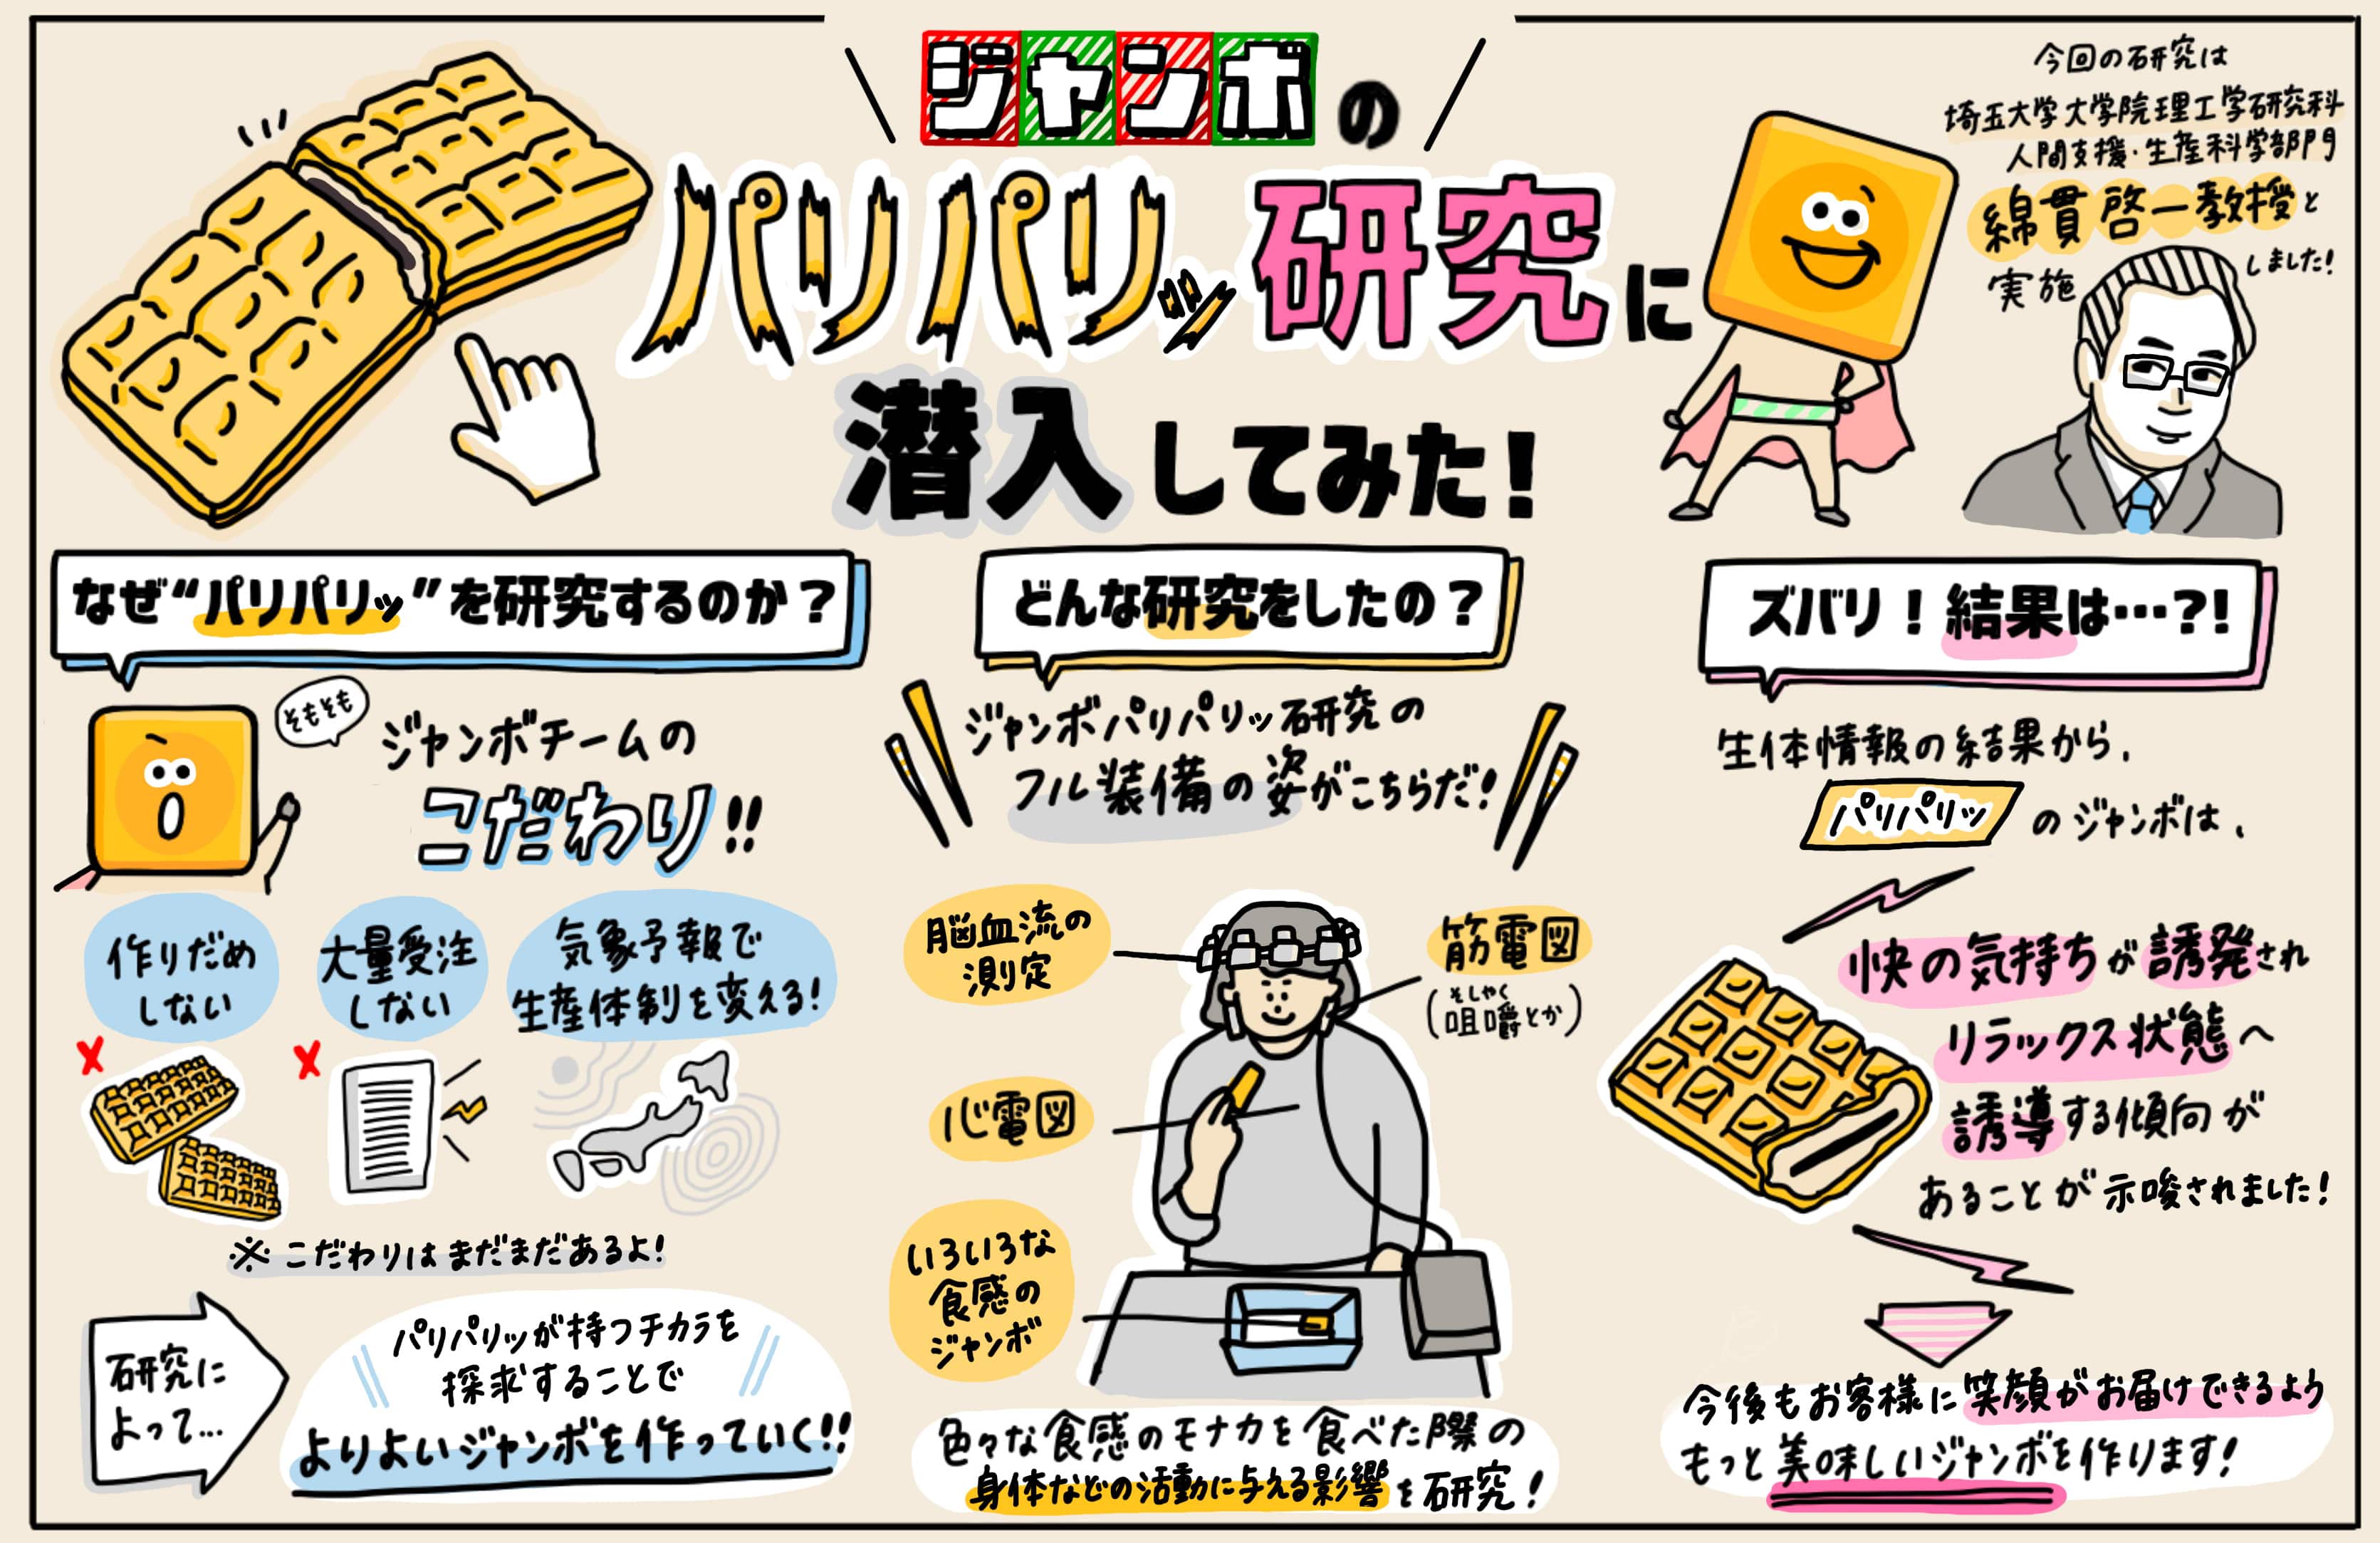 ジャンボの
パリパリッ研究に
潜入してみた!
今回の研究は
埼玉大学大学院理工学研究科
人間支援・生産科学部門
綿貫啓一教授と
実施しました!
なぜ“パリパリッ”を研究するのか?
そもそも
ジャンボチームの
こだわり!!
作りだめ
しない
大量受注
しない
気象予報で
生産体制を変える!
※こだわりはまだまだあるよ!
研究に
よって…
パリパリッが持つチカラを
探求することで
よりよいジャンボを作っていく!!
どんな研究をしたの?
ジャンボパリパリッ研究の
フル装備の姿がこちらだ!
脳血流の
測定
筋電図
そしゃく
(咀嚼とか)
心電図
いろいろな
食感の
ジャンボ
色々な食感のモナカを食べた際の
身体などの活動に与える影響を研究!
ズバリ!結果は…?!
生体情報の結果から、
パリパリッのジャンボは、
快の気持ちが誘発され
リラックス状態へ
誘導する傾向が
あることが示唆されました!
今後もお客様に笑顔がお届けできるよう
もっと美味しいジャンボを作ります!